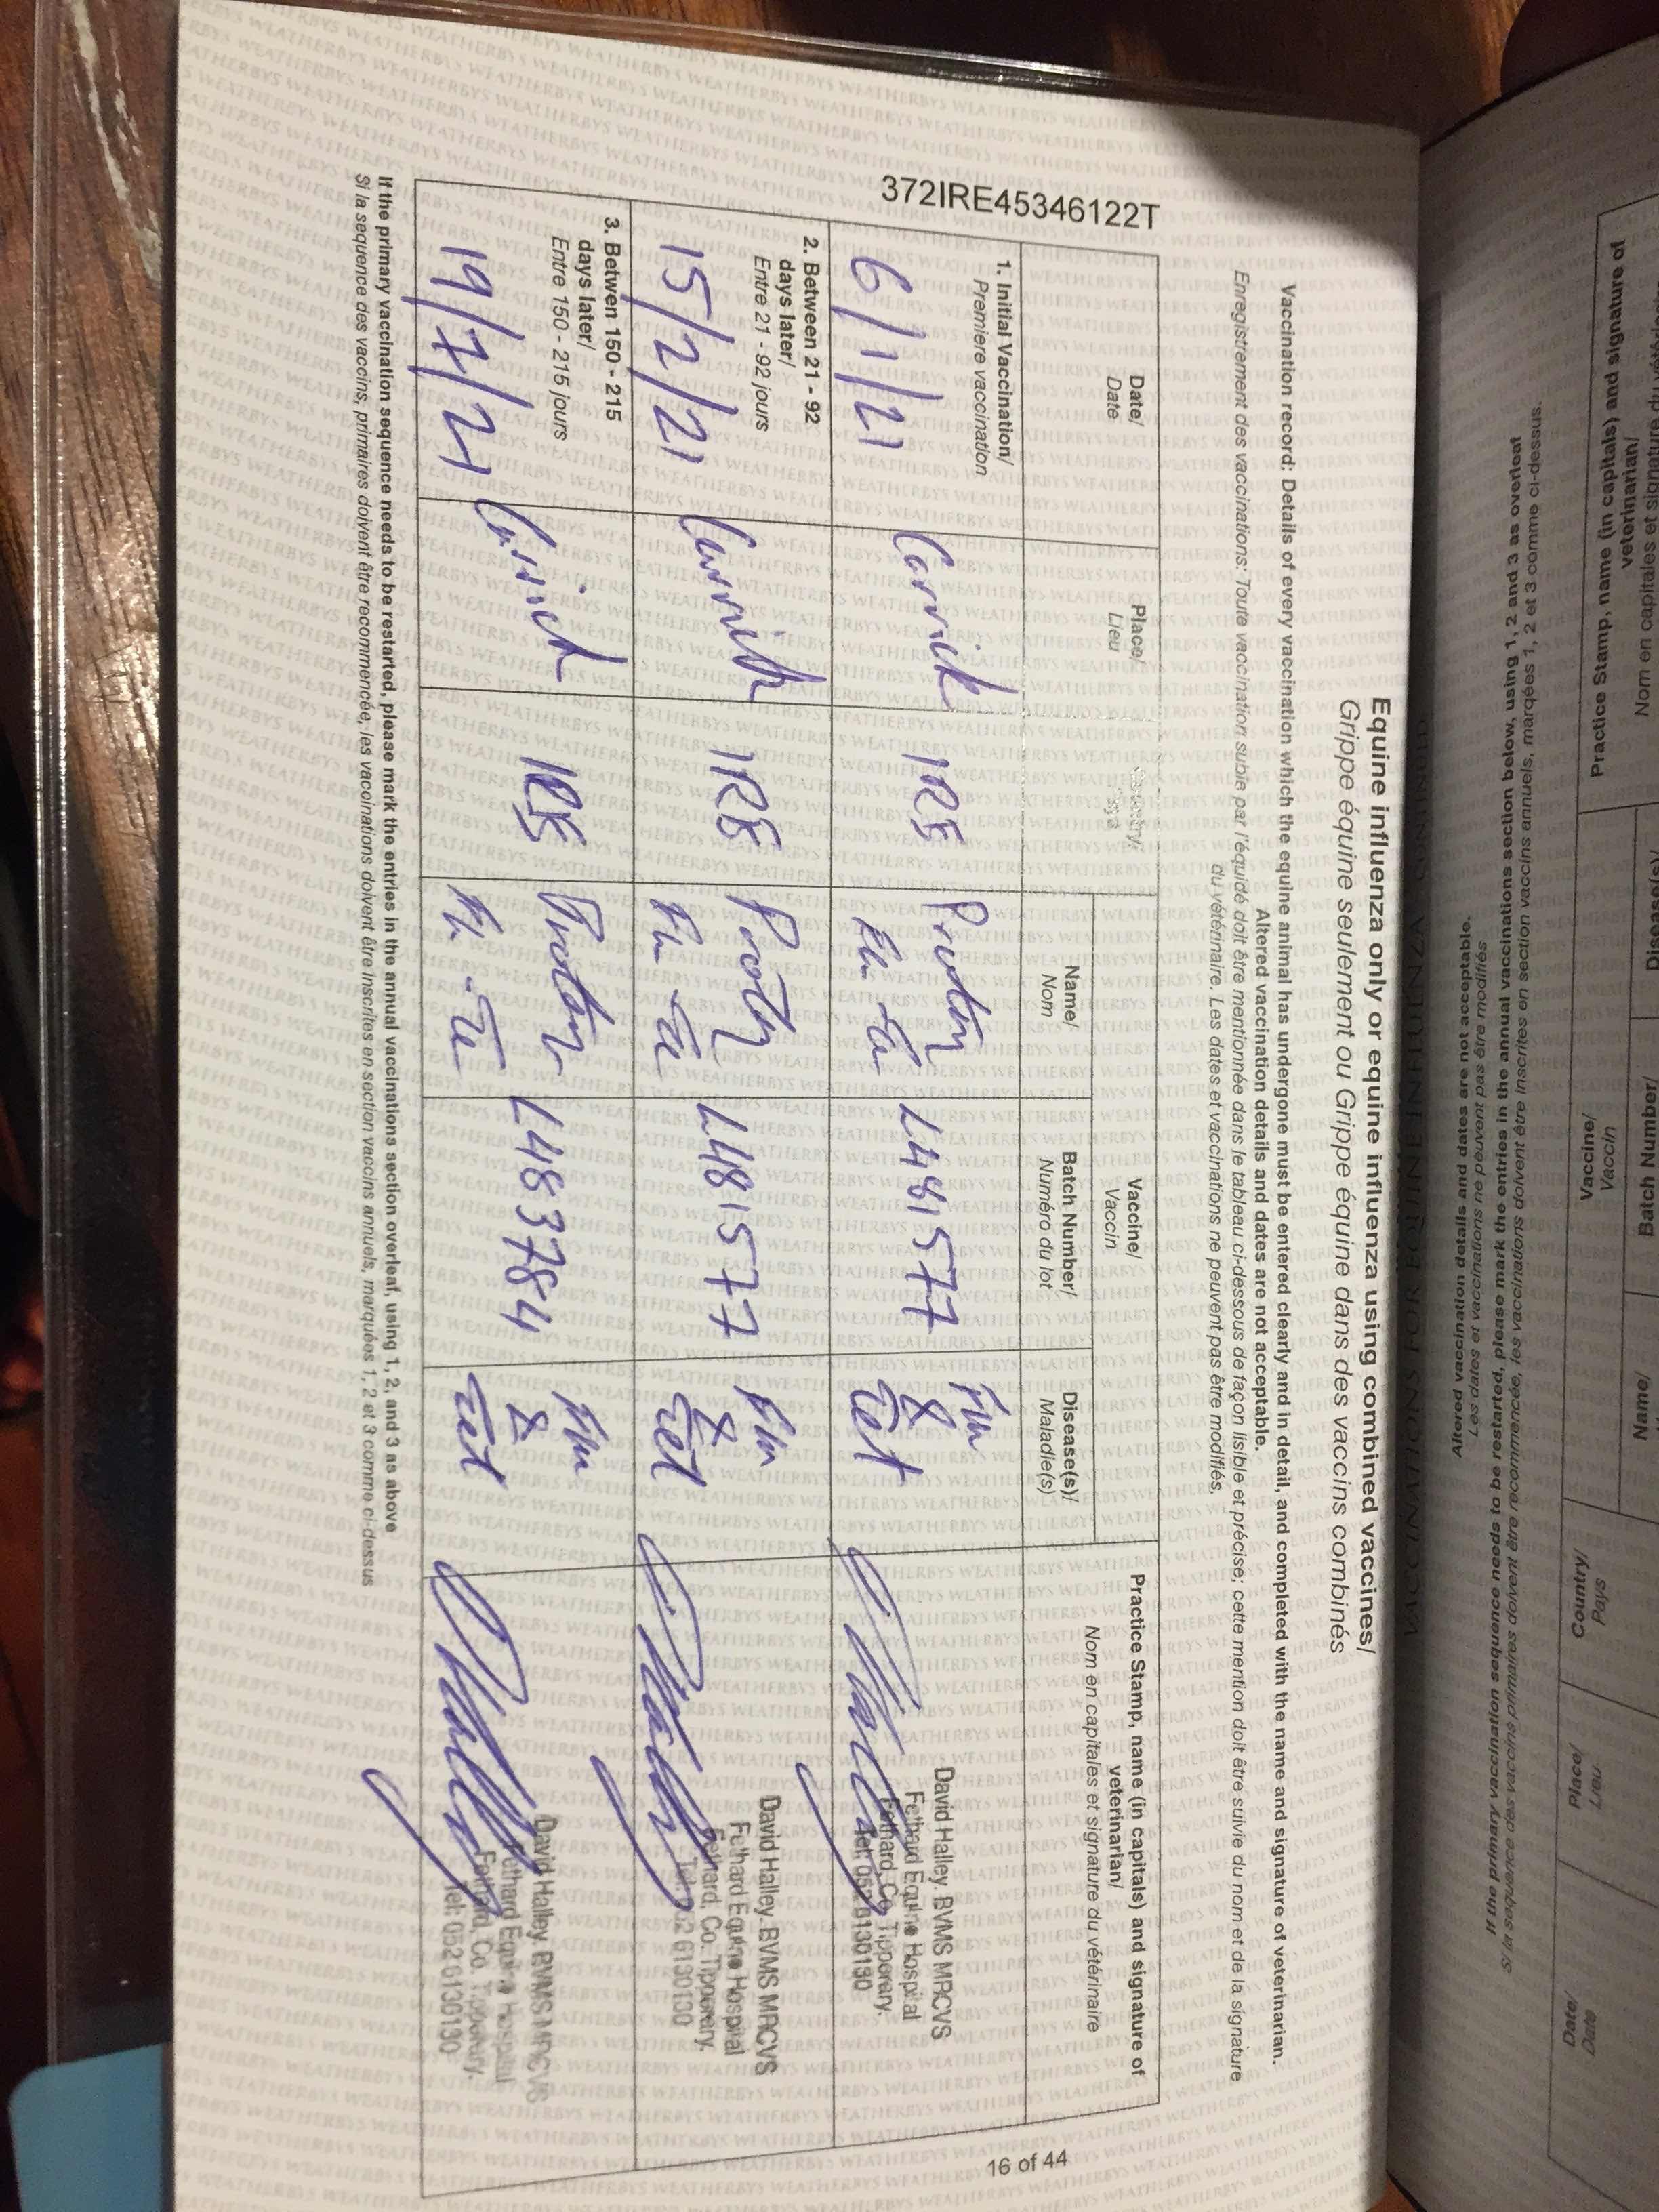 372IRE45346122T
Equine influenza only or equine influenza using combined vaccines/
Grippe équine seulement ou Grippe équine dans des vaccins combinés
Vaccination record: Details of every vaccination which the equine animal has undergone must be entered clearly and in detail, and completed with the name and signature of veterinarian.
Altered vaccination details and dates are not acceptable.
Enregistrement des vaccinations: Toute vaccination subie par l'équidé doit être mentionnée dans le tableau ci-dessous de façon lisible et précise; cette mention doit être suivie du nom et de la signature
du vétérinaire. Les dates et vaccinations ne peuvent pas être modifiés.
Date/
Date
Place/
Lieu
Country/
Pays
Vaccine/
Vaccin
Name/
Nom
Batch Number/
Numéro du lot
Disease(s)/
Maladie(s)
Practice Stamp, name (in capitals) and signature of
veterinarian/
Nom en capitales et signature du vétérinaire
1. Initial Vaccination/
Premiere vaccination
6/1/21
Carrick
IRE
Proteq
Flu-Te
L481577
Flu
&
Tet
David Halley. BVMS MRCVS
Fethard Equine Hospital
Fethard, Co. Tipperary.
Tel: 052 6130130
2. Between 21 - 92
days later/
Entre 21 - 92 jours
15/2/21
Carrick
IRE
Flu-Te
L481577
Flu
&
Tet
David Halley. BVMS MRCVS
Fethard Equine Hospital
Fethard, Co. Tipperary.
Tel: 052 6130130
3. Betwen 150 - 215
days later/
Entre 150 - 215 jours
19/7/21
Carrick
IRE
Flu-Te
L483784
Flu
&
Tet
David Halley. BVMS MRCVS
Fethard Equine Hospital
Fethard, Co. Tipperary.
Tel: 052 6130130
If the primary vaccination sequence needs to be restarted, please mark the entries in the annual vaccinations section overleaf, using 1, 2, and 3 as above
Si la sequence des vaccins, primaires doivent être recommencée, les vaccinations doivent être inscrites en section vaccins annuels, marquées 1, 2 et 3 comme ci-dessus
16 of 44
Practice Stamp, name (in capitals) and signature of
veterinarian/
Nom en capitales et signature du vétérinaire
Disease(s)/
Batch Number/
Vaccine/
Vaccin
Name/
Country/
Pays
Place/
Lieu
Date/
Date
Altered vaccination details and dates are not acceptable.
Les dates et vaccinations ne peuvent pas être modifiés
If the primary vaccination sequence needs to be restarted, please mark the entries in the annual vaccinations section below, using 1, 2 and 3 as overleaf
Si la séquence des vaccins primaires doivent être recommencée, les vaccinations doivent être inscrites en section vaccins annuels, marquées 1, 2 et 3 comme ci-dessus.